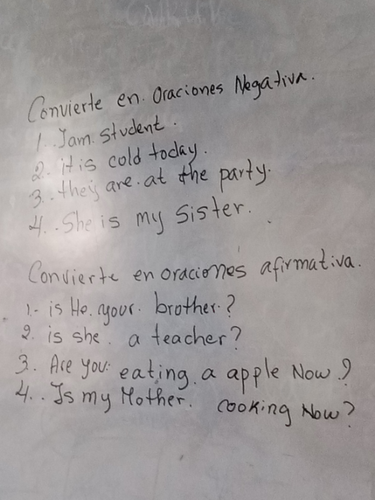 Convierte en oraciones Negativa.
1. I am student.
2. it is cold today.
3. they are at the party.
4. She is my Sister.
Convierte en oraciones afirmativa.
1.- is He your brother?
2. is she a teacher?
3. Are you eating a apple Now?
4. Is my Mother. cooking Now?